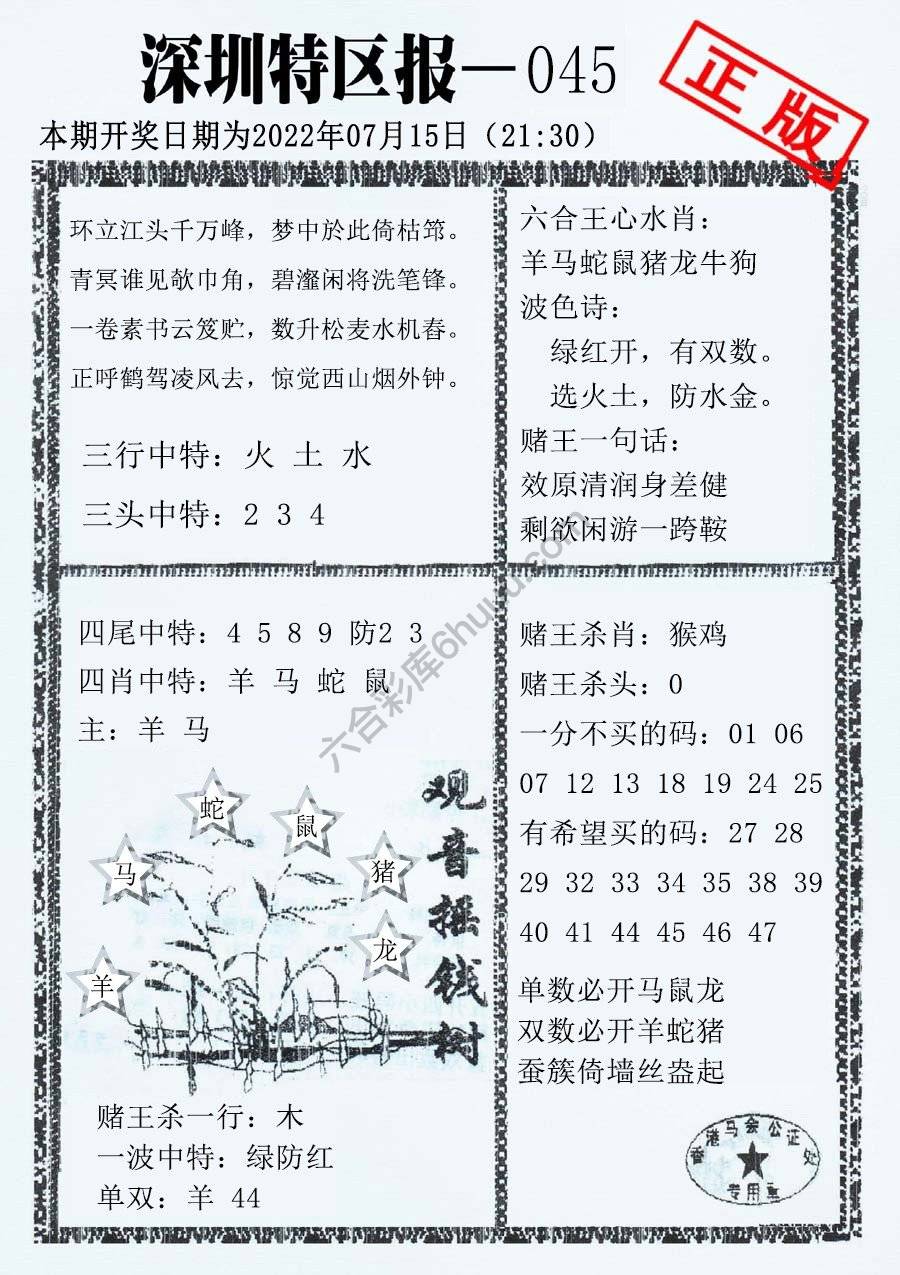 深圳特区报—045
正版
本期开奖日期为2022年07月15日（21:30）
环立江头千万峰，梦中於此倚枯筇。
青冥谁见欹巾角，碧瀣闲将洗笔锋。
一卷素书云笈贮，数升松麦水机舂。
正呼鹤驾凌风去，惊觉西山烟外钟。
三行中特：火 土 水
三头中特：2 3 4
六合王心水肖：
羊马蛇鼠猪龙牛狗
波色诗：
绿红开，有双数。
选火土，防水金。
赌王一句话：
效原清润身差健
剩欲闲游一跨鞍
四尾中特：4 5 8 9 防2 3
四肖中特：羊 马 蛇 鼠
主：羊 马
蛇
鼠
马
猪
龙
羊
观音摇钱树
赌王杀一行：木
一波中特：绿防红
单双：羊 44
赌王杀肖：猴鸡
赌王杀头：0
一分不买的码：01 06
07 12 13 18 19 24 25
有希望买的码：27 28
29 32 33 34 35 38 39
40 41 44 45 46 47
单数必开马鼠龙
双数必开羊蛇猪
蚕簇倚墙丝盎起
香港马会公证处
专用章
六合彩库6huuu.com